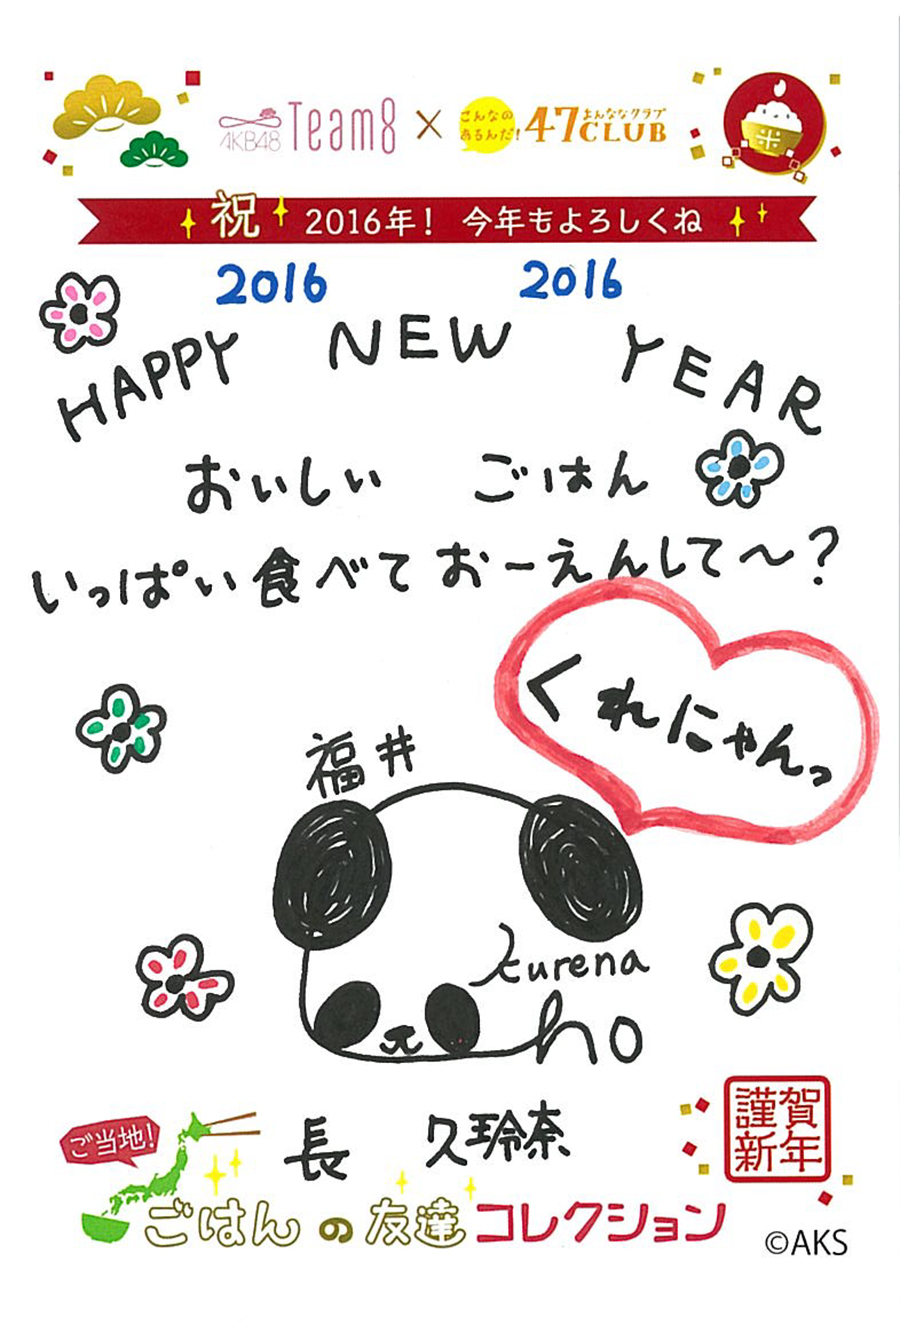 AKB48 Team8 × こんなの あるんだ! 47CLUB よんななクラブ
米
祝 2016年! 今年もよろしくね
2016 2016
HAPPY NEW YEAR
おいしい ごはん
いっぱい食べて おーえんして〜?
くれにゃんっ
福井
kurena
ho
長 久玲奈
謹賀
新年
ご当地!
ごはんの友達コレクション
©AKS